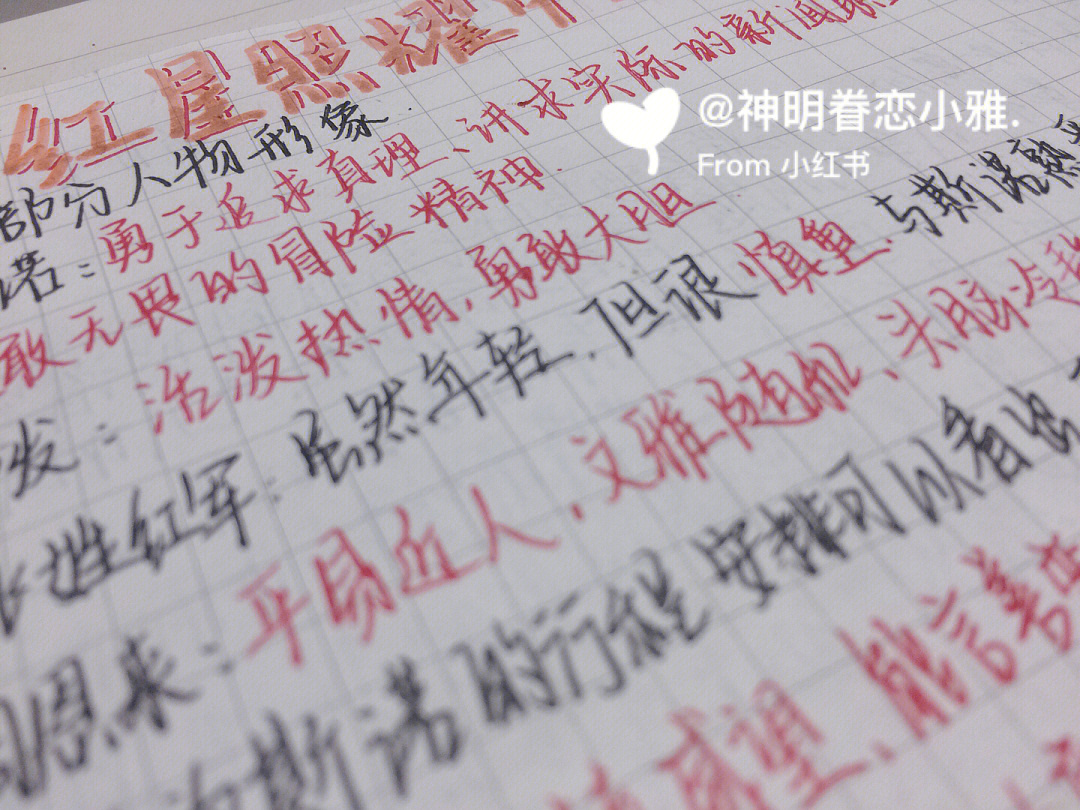 红星照耀
部分人物形象
诺：勇于追求真理、讲求实际的新闻
敢无畏的冒险精神.
发：活泼热情，勇敢大胆
姓红军：虽然年轻，但很慎重.与斯诺
恩来：平易近人，文雅随和、头脑冷
斯诺的行程安排可以看出
威望、能言善
@神明眷恋小雅.
From 小红书